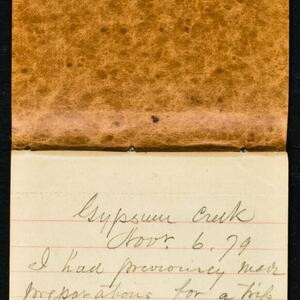 Gypsum Creek
Nov. 6. 79
I had previously made
preparations for a trip